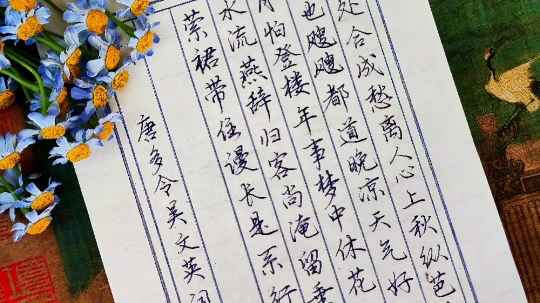 处合成愁离人心上秋纵芭
也飕飕都道晚凉天气好
月怕登楼年事梦中休花
水流燕辞归客尚淹留垂
萦裙带住谩长是系行
唐多令吴文英词